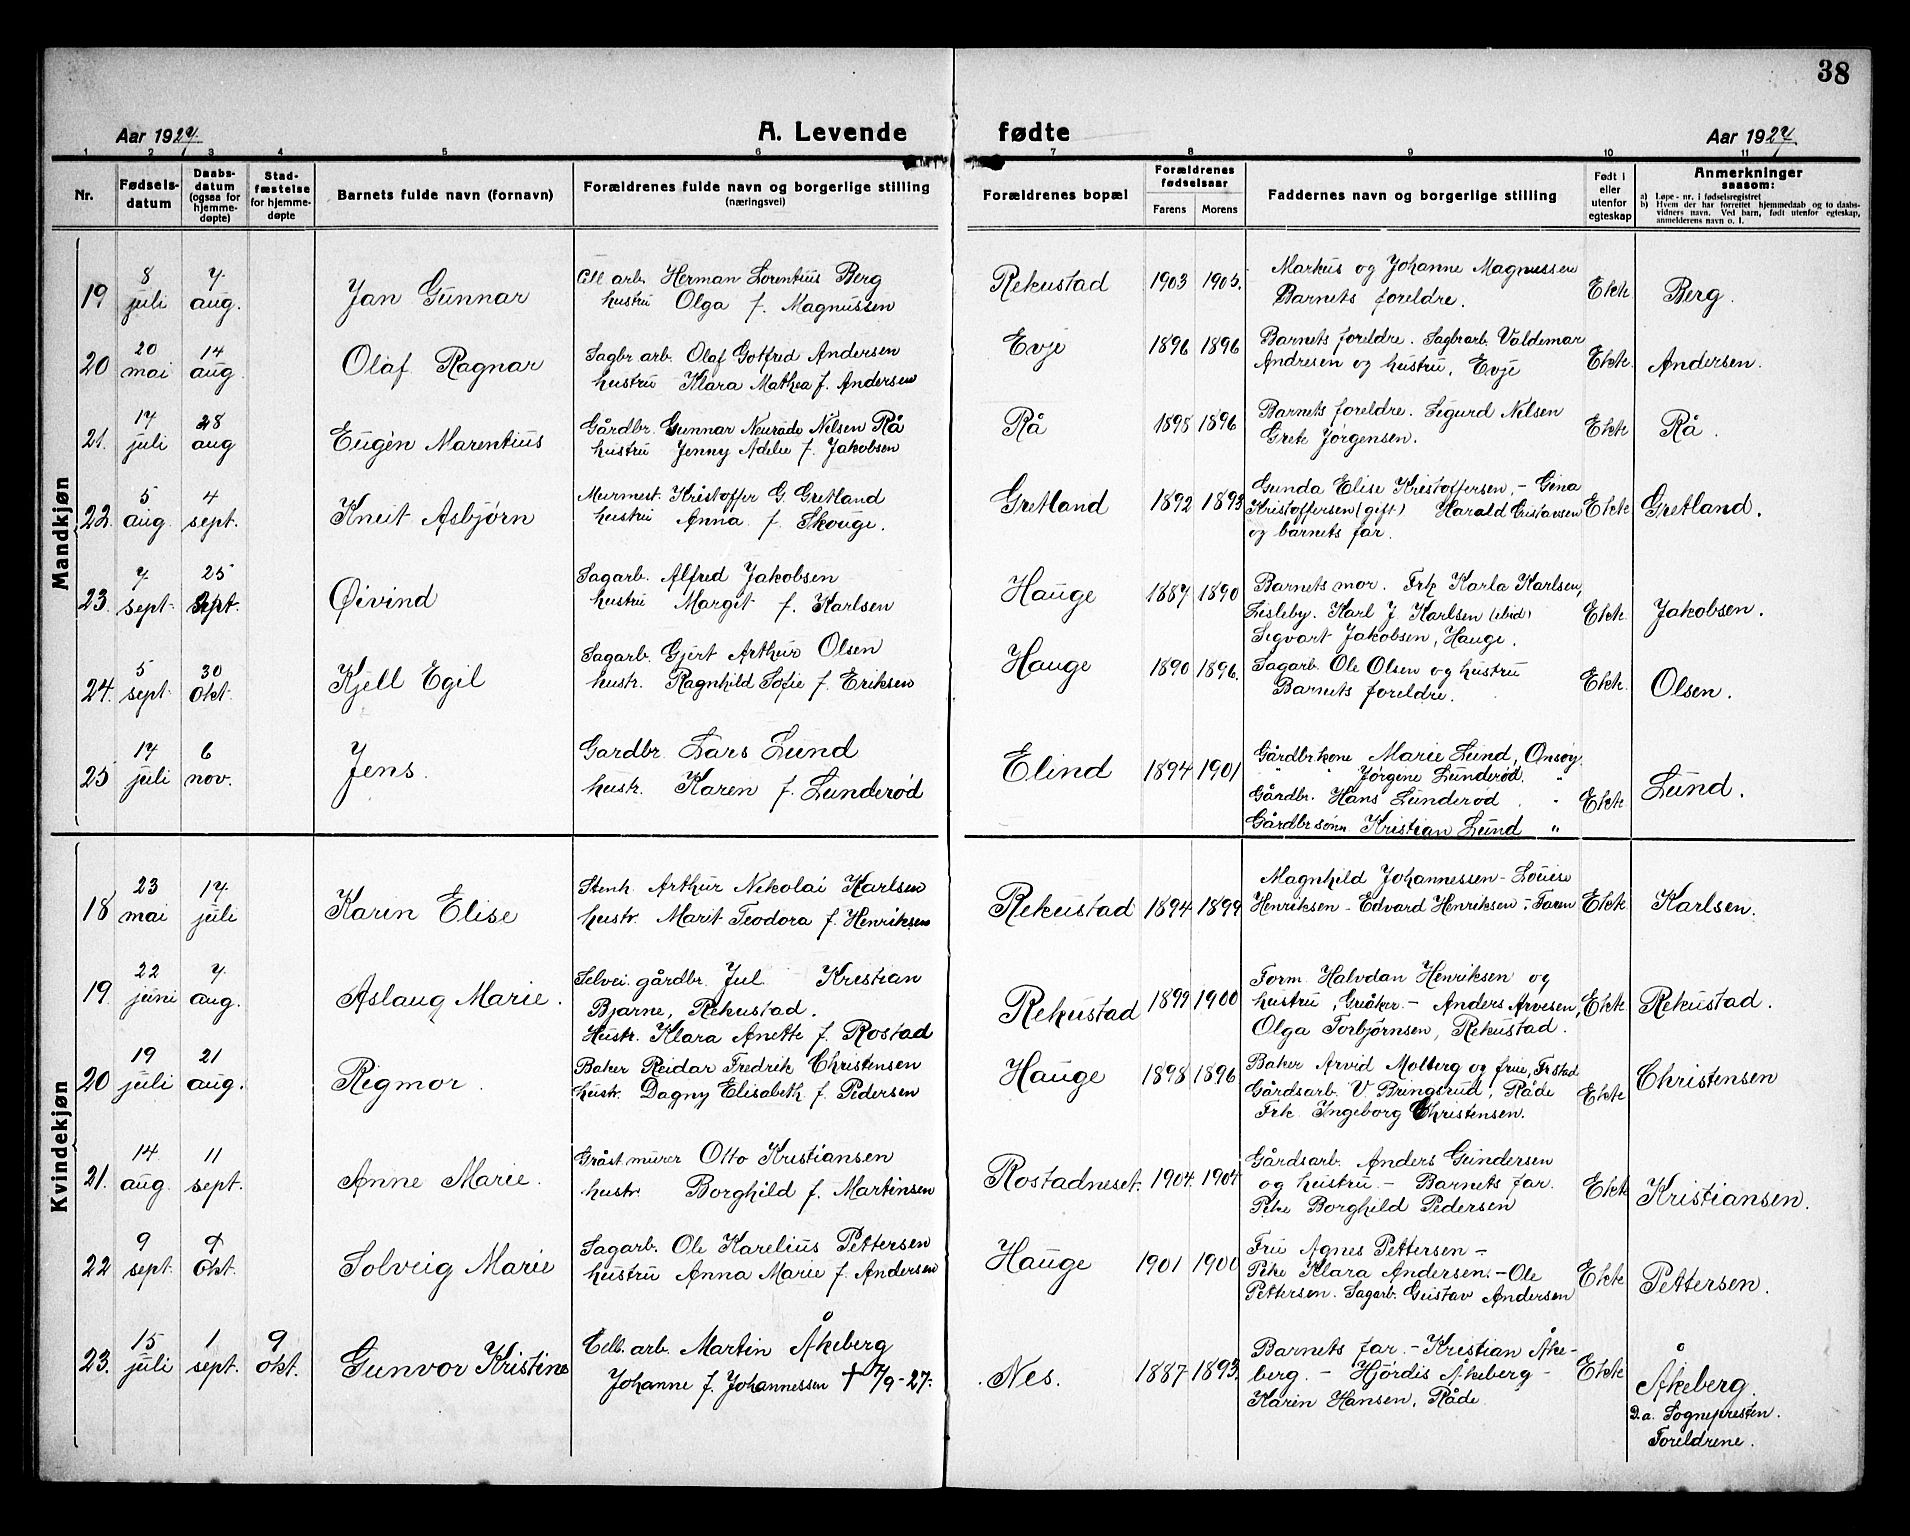 38
Aar 1927. A. Levende fødte Aar 1927.
1 2 3 4 5 6 7 8 9 10 11
Nr. Fødsels-datum Daabs-datum (ogsaa for hjemme-døpte) Stad-fæstelse for hjemme-døpte Barnets fulde navn (fornavn) Forældrenes fulde navn og borgerlige stilling (næringsvei) Forældrenes bopæl Forældrenes fødselsaar Farens Morens Faddernes navn og borgerlige stilling Født i eller utenfor egteskap Anmerkninger saasom:
a) Løpe-nr. i fødselsregistret
b) Hvem der har forrettet hjemmedaab og to daabs-vidners navn. Ved barn, født utenfor egteskap, anmelderens navn o. l.
Mandkjøn
19 8 juli 7 aug. Jan Gunnar
Cell arb. Herman Lorentius Berg
hustru Olga f. Magnussen
Rekustad 1903 1905.
Markus og Johanne Magnussen
Barnets foreldre.
Ekte Berg.
20 20 mai 14 aug. Olaf Ragnar
Sagbr arb. Olaf Gotfred Andersen
hustru Klara Mathea f. Andersen
Evje 1896 1896
Barnets foreldre. Sagbr arb. Valdemar
Andresen og hustru, Evje
Ekte Andersen.
21. 17 juli 28 aug Eugén Marentius
Gårdbr. Gunnar Neuråde Nilsen Rå
hustru Jenny Adelie f. Jakobsen
Rå 1898 1896
Barnets foreldre. Sigurd Nilsen
Grete Jørgensen.
Ekte Rå.
22. 5 aug. 4 sept. Knut Asbjørn
Murmest. Kristoffer G. Gretland
hustru Anna f. Skouge.
Gretland 1892 1893
Gunda Elise Kristoffersen, - Gina
Kristoffersen (gift) Harald Gustavsen
og barnets far.
Ekte Gretland.
23. 7 sept. 25 sept. Øivind
Sagarb. Alfred Jakobsen
hustru Margit f. Karlsen
Hauge 1887 1890
Barnets mor. Frk Karla Karlsen,
Lisleby. Karl J Karlsen (ibid)
Sigvart Jakobsen, Hauge.
Ekte Jakobsen.
24. 5 sept. 30 okt. Kjell Egil
Sagarb. Gjert Arthur Olsen
hustr. Ragnhild Sofie f. Eriksen
Hauge 1890 1896.
Sagarb. Ole Olsen og hustru
Barnets foreldre.
Ekte Olsen.
25 17 juli 6 nov. Jens.
Gardbr. Lars Lund
hustr. Karen f. Lunderød
Elind 1894 1901
Gårdbr.kone Marie Lund, Onsøy
" " Jørgine Lunderød, "
Gårdbr. Hans Lunderød. "
Gårdbr sønn Kristian Lund "
Ekte Lund.
Kvindekjøn
18 23 mai 17 juli Karin Elise
Stenh. Arthur Nikolai Karlsen
hustr. Marit Teodora f. Henriksen
Rekustad 1894 1899.
Magnhild Johannessen - Louise
Henriksen - Edvard Henriksen - Faren
Ekte Karlsen.
19. 22 juni 7 aug. Aslaug Marie.
Selvei. gårdbr. Jul Kristian
Bjarne, Rekustad.
Hustr. Klara Anette f. Rostad
Rekustad 1899 1900
Form. Halvdan Henriksen og
hustru, Greåker. - Anders Arvesen,
Olga Torbjørnsen, Rekustad.
Ekte Rekustad.
20 19 juli 21 aug. Rigmor.
Baker Reidar Fredrik Christensen
hustr. Dagny Elisabeth f Pedersen
Hauge 1898 1896
Baker Arvid Molberg og frue, Fr.stad
Gårdsarb. V Bringsrud, Råde
Frk Ingeborg Christensen.
Ekte Christensen
21. 14 aug. 11 sept. Anne Marie.
Gråst.murer Otto Kristiansen
hustr. Borghild f. Martinsen
Rostadneset. 1904. 1904.
Gårdsarb. Anders Gundersen
og hustru. - Barnets far.
Pike Borghild Pedersen
Ekte Kristiansen.
22 9 sept. 9 okt. Solveig Marie
Sagarb. Ole Karelius Pettersen
hustru Anna Marie f. Andersen
Hauge 1901 1900
Fru Agnes Pettersen -
Pike Klara Andersen. - Ole
Pettersen. Sagarb. Gustav Andersen
Ekte Pettersen.
23. 15 juli 1 sept. 9 okt. Gunvor Kristine
Cell. arb. Martin Åkeberg
Johanne f. Johannessen † 7/9-27.
Nes. 1887 1893.
Barnets far. - Kristian Åke-
berg. - Hjördis Åkeberg -
Karin Hansen, Råde
Ekte Åkeberg.
D.a. Sognepresten.
Foreldrene.